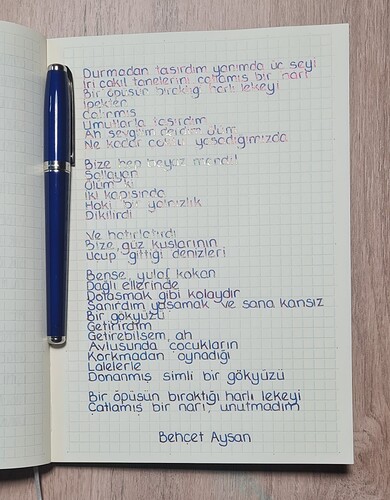 Durmadan taşırdım yanımda üç şeyi
İri çakıl tanelerini, çatlamış bir narı
Bir öpüşün bıraktığı harlı lekeyi
İpekten
Çatırmış
Umutlarla taşırdım
Ah sevgilim derdim ölüm
Ne kadar çabuk yaşadığımızda
Bize hep beyaz mendil
Sallayan
Ölüm ki
İki kapısında
Haki bir yalnızlık
Dikilirdi
Ve hatırlatırdı
Bize, güz kuşlarının
Uçup gittiği denizleri
Bense, yulaf kokan
Dağlı ellerinde
Dolaşmak gibi kolaydır
Sanırdım yaşamak ve sana kansız
Bir gökyüzü
Getirirdim
Getirebilsem, ah
Avlusunda çocukların
Korkmadan oynadığı
Lalelerle
Donanmış simli bir gökyüzü
Bir öpüşün bıraktığı harlı lekeyi
Çatlamış bir narı, unutmadım
Behçet Aysan